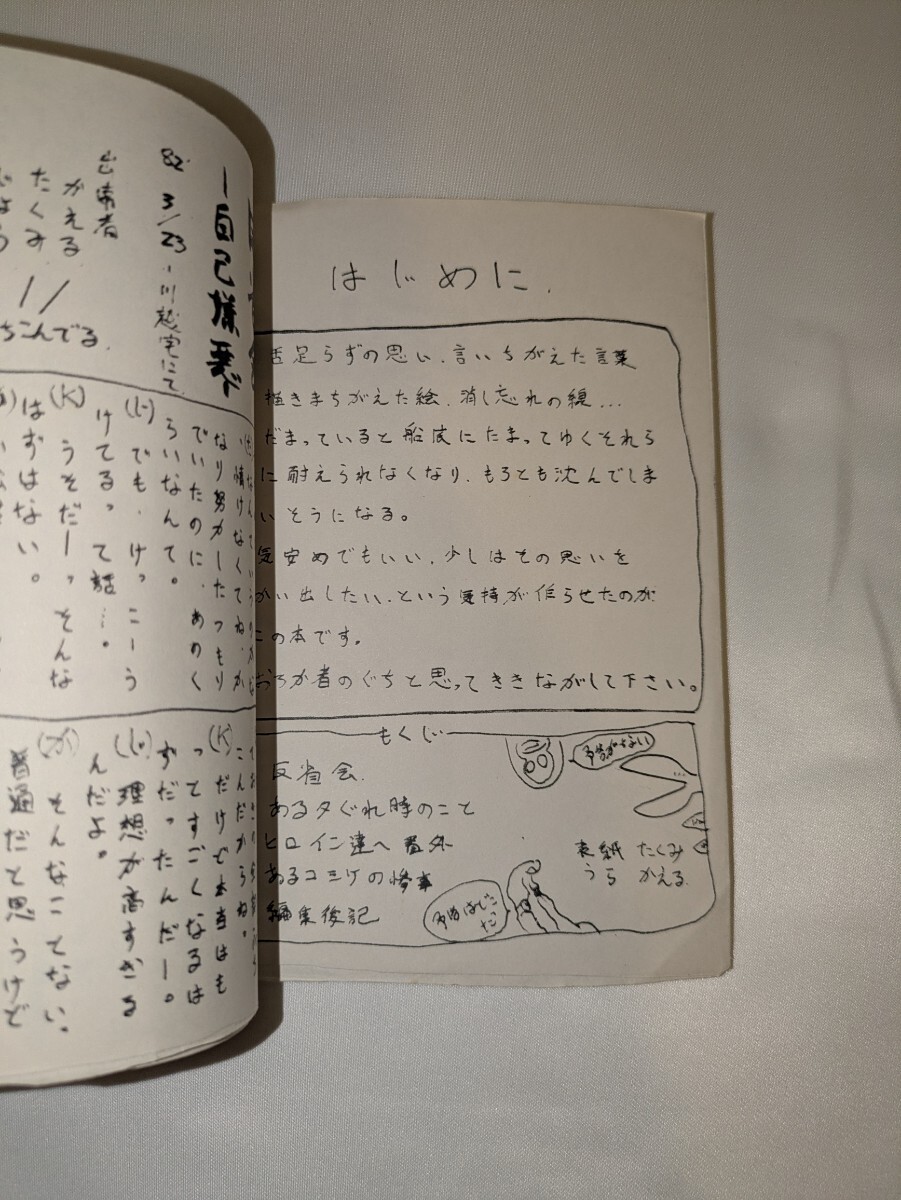 はじめに.
舌足らずの思い、言いちがえた言葉
描きまちがえた絵、消し忘れの線...
だまっていると船底にたまってゆくそれら
に耐えられなくなり、もろとも沈んでしま
いそうになる。
気安めでもいい、少しはその思いを
かい出したい、という気持が作らせたのが
この本です。
おろか者のぐちと思ってききながして下さい。
もくじ
反省会.
ある夕ぐれ時のこと
ヒロイン達へ 番外
あるコミケの惨事
編集後記
表紙 たくみ
うら かえる.
ー自己嫌悪
82' 3/23 ー川越宅にて
出席者
がえる
たくみ
じょう
ちこんでる.
情けなくてね、が
なり努力したつもり
でいたのに、あのく
らいなんて。
(じ)でも、けっこーう
けてるって話...。
(K)うそだーっそんな
はずはない。
こんだからね。
(K)だけで本当はも
ってすごくなるは
ずだったんだー。
(じ)理想が高すぎる
んだよ。
(が)そんなことない、
普通だと思うけど